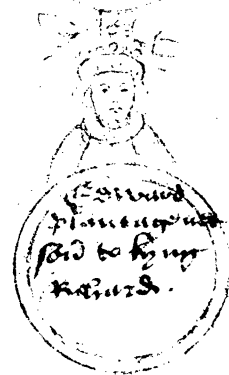 Edward
plantagenet
son to kyng
Richard .